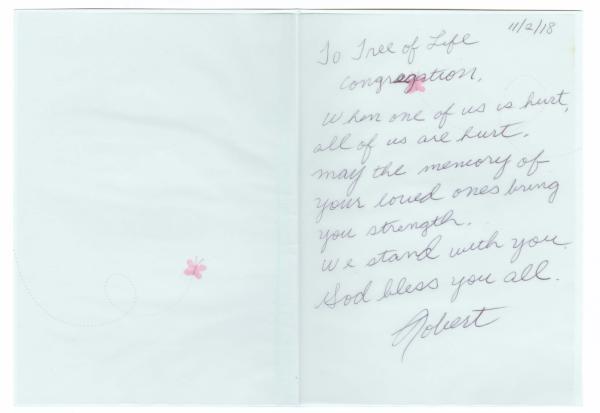 11/2/18
To Tree of Life
Congregation,
When one of us is hurt,
all of us are hurt.
may the memory of
your loved ones bring
you strength.
We stand with you.
God bless you all.
Robert